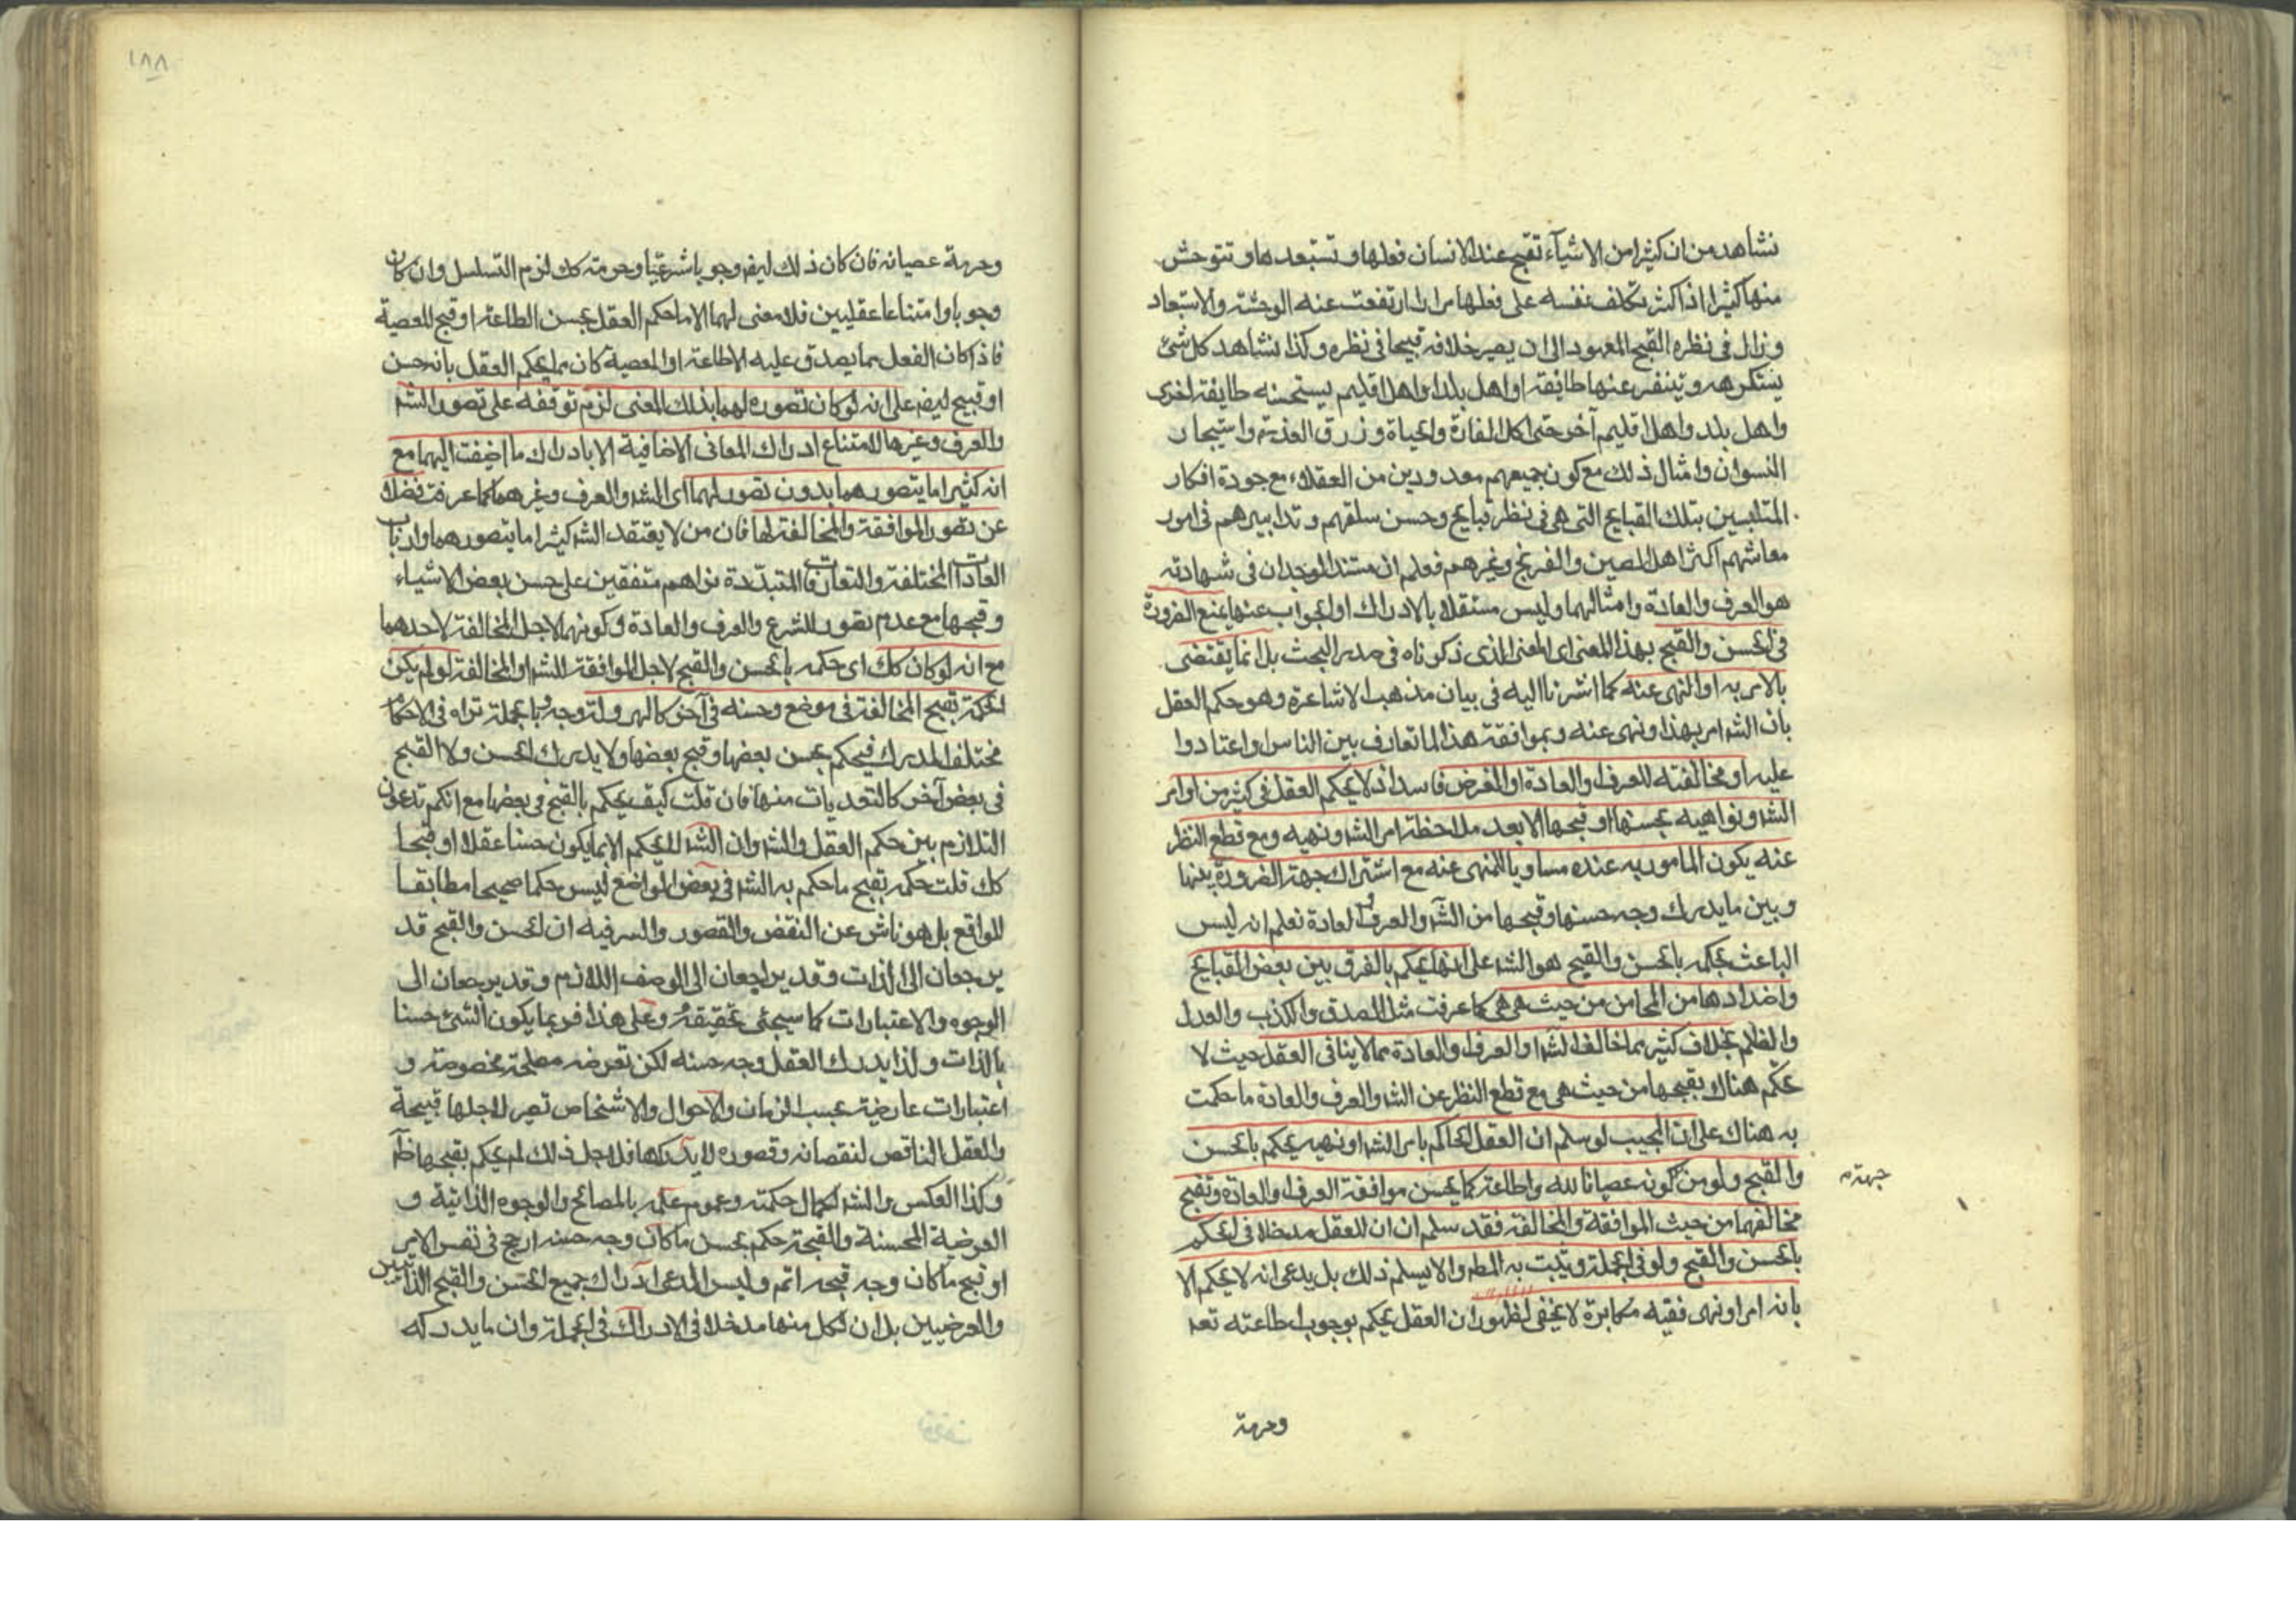 نشاهد من ان كثيرا من الاشيآء تقبح عند الانسان فعلها و تستبعدها و تتوحش
منها كثيرا اذا كثر تكلف نفسه على فعلها مرارا ارتفعت عنه الوحشة والاستبعاد
وزال فى نظره القبح المعهود الى ان يصير خلافه قبيحا فى نظره وكذا نشاهد كل شئ
يستكرهه و يتنفر عنها طايفة او اهل بلد او اهل اقليم يستحسنه طايفة اخرى
واهل بلد واهل اقليم آخر حتى اكل الفارة والحياة وزرق العذرة واستيجار
النسوان وامثال ذلك مع كون جميعهم معدودين من العقلاء مع جودة افكار
المتلبسين بتلك القبايح التى هى فى نظر قبايح وحسن سلقهم و تدابيرهم فى امور
معاشهم اكثر اهل الصين والفرنج وغيرهم فعلم ان مستند الوجدان فى شهادته
هو العرف والعادة وامثالهما وليس مستقلا بالادراك اولى الجواب عنها بمنع الضرورة
فى الحسن والقبح بهذا المعنى اى المعنى الذى ذكرناه فى صدر البحث بل انما يقتضى
بالامر به او النهى عنه كما اشرنا اليه فى بيان مذهب الاشاعرة وهو حكم العقل
بان الشر امر بهذا ونهى عنه وبموافقة هذا لما تعارف بين الناس واعتادوا
عليه او مخالفته للعرف او العادة او الغرض فاسد اذ لا يحكم العقل فى كثير من اوامر
الشر ونواهيه بحسنها او قبحها الا بعد ملاحظة امر الشر ونهيه ومع قطع النظر
عنه يكون المامور به عنده مساويا للمنهى عنه مع اشتراك جهة الضرورة بينها
وبين ما يدرك وجه حسنها وقبحها من الشر والعرف والعادة نعلم انه ليس
الباعث بحكمه بالحسن والقبح هو الشر على انها يحكم بالفرق بين بعض القبايح
واضدادها من المحاسن من حيث هى هى كما عرفت مثل الصدق والكذب والعدل
والظلم بخلاف كثير مما خالف الشر او العرف او العادة مما لا ينافى العقل حيث لا
يحكم هناك بقبحها من حيث هى مع قطع النظر عن الشر والعرف والعادة ما حكمت
به هناك على ان المجيب لو سلم ان العقل الحاكم بامر الشر او نهيه يحكم بالحسن
والقبح ولو من كونه عصيانا لله واطاعة كما يحسن موافقة العرف والعادة وتقبح
جهة م
مخالفتهما من حيث الموافقة والمخالفة فقد سلم ان ان للعقل مدخلا فى الحكم
بالحسن والقبح ولو فى الجملة ويثبت به المطم والا يسلم ذلك بل يدعى انه لا يحكم الا
بانه امر او نهى ففيه مكابرة لا يخفى لظهور ان العقل يحكم بوجوب اطاعته تعم
وحرمة
١٨٨
وحرمة عصيانه فان كان ذلك ايضم وجوبا شرعيا وحرمته كك لزم التسلسل وان كان
وجوبا وامتناعا عقليين فلا معنى لهما الا ما حكم العقل بحسن الطاعة او قبح المعصية
فاذا كان الفعل مما يصدق عليه الاطاعة او المعصية كان مما يحكم العقل بانه حسن
او قبيح ايضم على انه لو كان تصوره لهما بذلك المعنى لزم توقفه على تصور الشر
والعرف وغيرها لامتناع ادراك المعانى الاضافية الا بادراك ما اضيفت اليها مع
انه كثيرا ما يتصورهما بدون تصور لهما اى الشر والعرف وغيرهما كما عرفت فضلا
عن تصور الموافقة والمخالفة لها فان من لا يعتقد الشر كثيرا ما يتصورهما وارباب
العادات المختلفة والتعارفات المتبددة نراهم متفقين على حسن بعض الاشياء
وقبحها مع عدم تصور الشرع والعرف والعادة وكونهما لاجل المخالفة لاحدهما
مع انه لو كان كك اى حكمه بالحسن والقبح لاجل الموافقة للشر او المخالفة لو لم يكن
الحكمة تقبح المخالفة فى موضع وحسنه فى آخر كالهرولة وبالجملة نراه فى الاحكام
مختلف المدرك فيحكم بحسن بعضها وقبح بعضها ولا يدرك الحسن ولا القبح
فى بعض آخر كالتعبديات منها فان قلت كيف يحكم بالقبح فى بعضها مع انكم تدعون
التلازم بين حكم العقل والشر وان الشر لا يحكم الا بما يكون حسنا عقلا او قبيحا
كك قلت حكمه بقبح ما حكم به الشر فى بعض المواضع ليس حكما صحيحا مطابقا
للواقع بل هو ناش عن النقص والقصور والسر فيه ان الحسن والقبح قد
يرجعان الى الذات وقد يراجعان الى الوصف اللازم وقد يرجعان الى
الوجوه والاعتبارات كما سيجئ تحقيقه وعلى هذا فربما يكون الشئ حسنا
بالذات ولذا يدرك العقل وجه حسنه لكن تعرضه مصلحة مخصوصة و
اعتبارات عارضية بحسب الزمان والاحوال والاشخاص تصير لاجلها قبيحة
والعقل الناقص لنقصانه وقصوره لا يدركها فلاجل ذلك لم يحكم بقبحها ظآ
وكذا العكس والشر لكمال حكمته وعموم علمه بالمصالح والوجوه الذاتية و
العرضية المحسنة والمقبحة حكم بحسن ما كان وجه حسنه ارجح فى نفس الامر
او قبح ما كان وجه قبحه اتم وليس المدعى ادراك جميع الحسن والقبح الذاتيين
والعرضيين بل ان لكل منها مدخلا فى الادراك فى الجملة وان ما يدركه